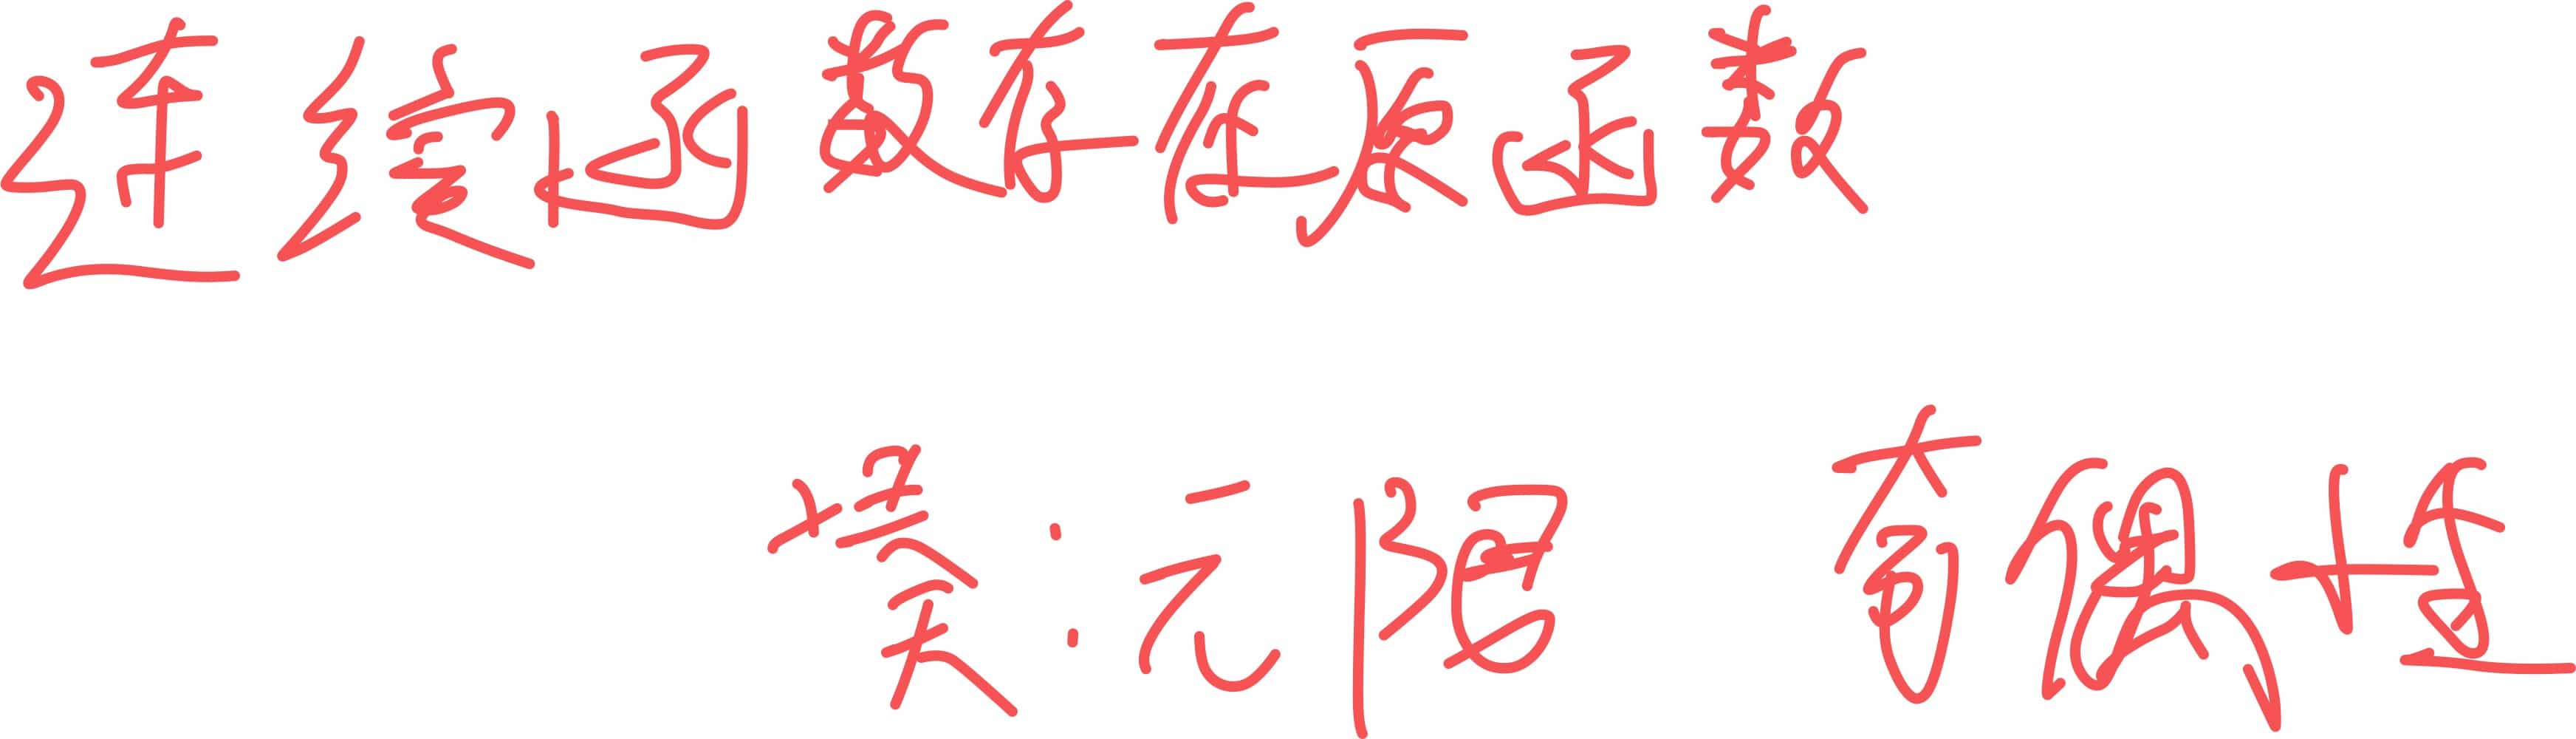 连续函数存在原函数
:元 奇偶性